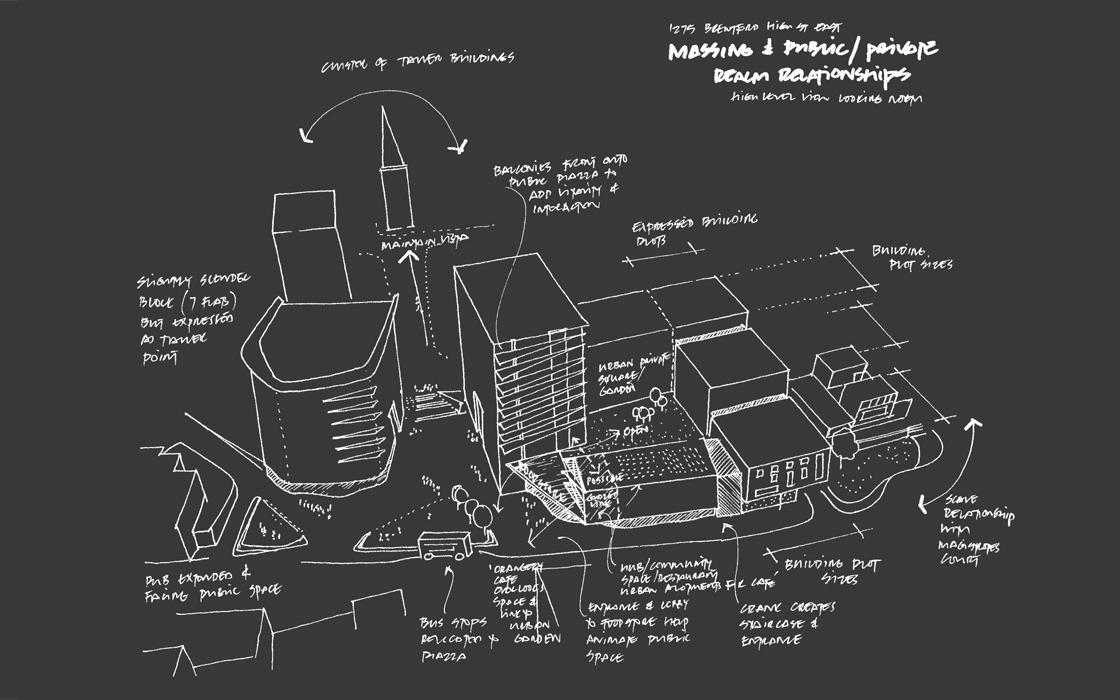 1275 BRENTFORD HIGH ST EAST
MASSING & PUBLIC/PRIVATE
REALM RELATIONSHIPS
HIGH LEVEL VIEW LOOKING NORTH
CLUSTER OF TALLER BUILDINGS
BALCONIES FRONT ONTO
PUBLIC PIAZZA TO
ADD VITALITY &
INTERACTION
MAINTAIN VISTA
EXPRESSED BUILDING
PLOTS
BUILDING
PLOT SIZES
SLIGHTLY SLENDER
BLOCK (7 FLAB)
BUT EXPRESSED
AS TALLER
POINT
URBAN PRIVATE
SQUARE/
GARDEN
OPEN
POSSIBLE
LINK
SCALE
RELATIONSHIP
WITH
MAGISTRATES
COURT
PUB EXTENDED &
FACING PUBLIC SPACE
BUS STOPS
RELOCATED TO
PIAZZA
ORANGERY
CAFE
OVERLOOKS
SPACE &
LINK TO
URBAN
GARDEN
HUB/COMMUNITY
SPACE/RESTAURANT
URBAN ALLOTMENTS FOR CAFÉ
ENTRANCE & LOBBY
TO FOODSTORE HELP
ANIMATE PUBLIC
SPACE
CRANK CREATES
STAIRCASE &
ENTRANCE
BUILDING PLOT
SIZES